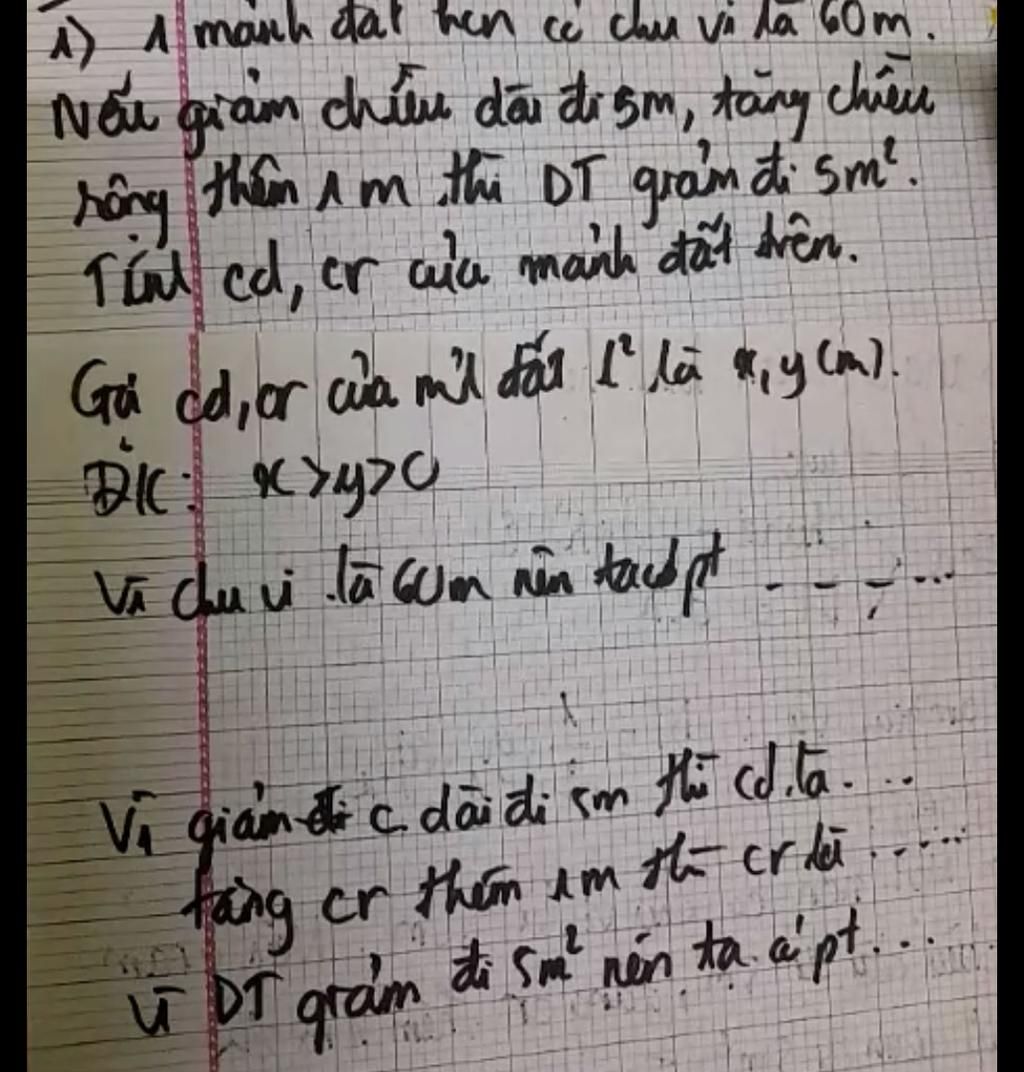 1) 1 mảnh đất hcn có chu vi là 60m.
Nếu giảm chiều dài đi 5m, tăng chiều
rộng thêm 1m thì DT giảm đi 5m².
Tính cd, cr của mảnh đất trên.
Gọi cd, cr của mả đất l² là x, y (m).
ĐK: x>y>0
Vì chu vi là 60m nên ta có pt ----...
Vì giảm c dài đi 5m thì cd là....
tăng cr thêm 1m thì cr là......
Vì DT giảm đi 5m² nên ta có pt....